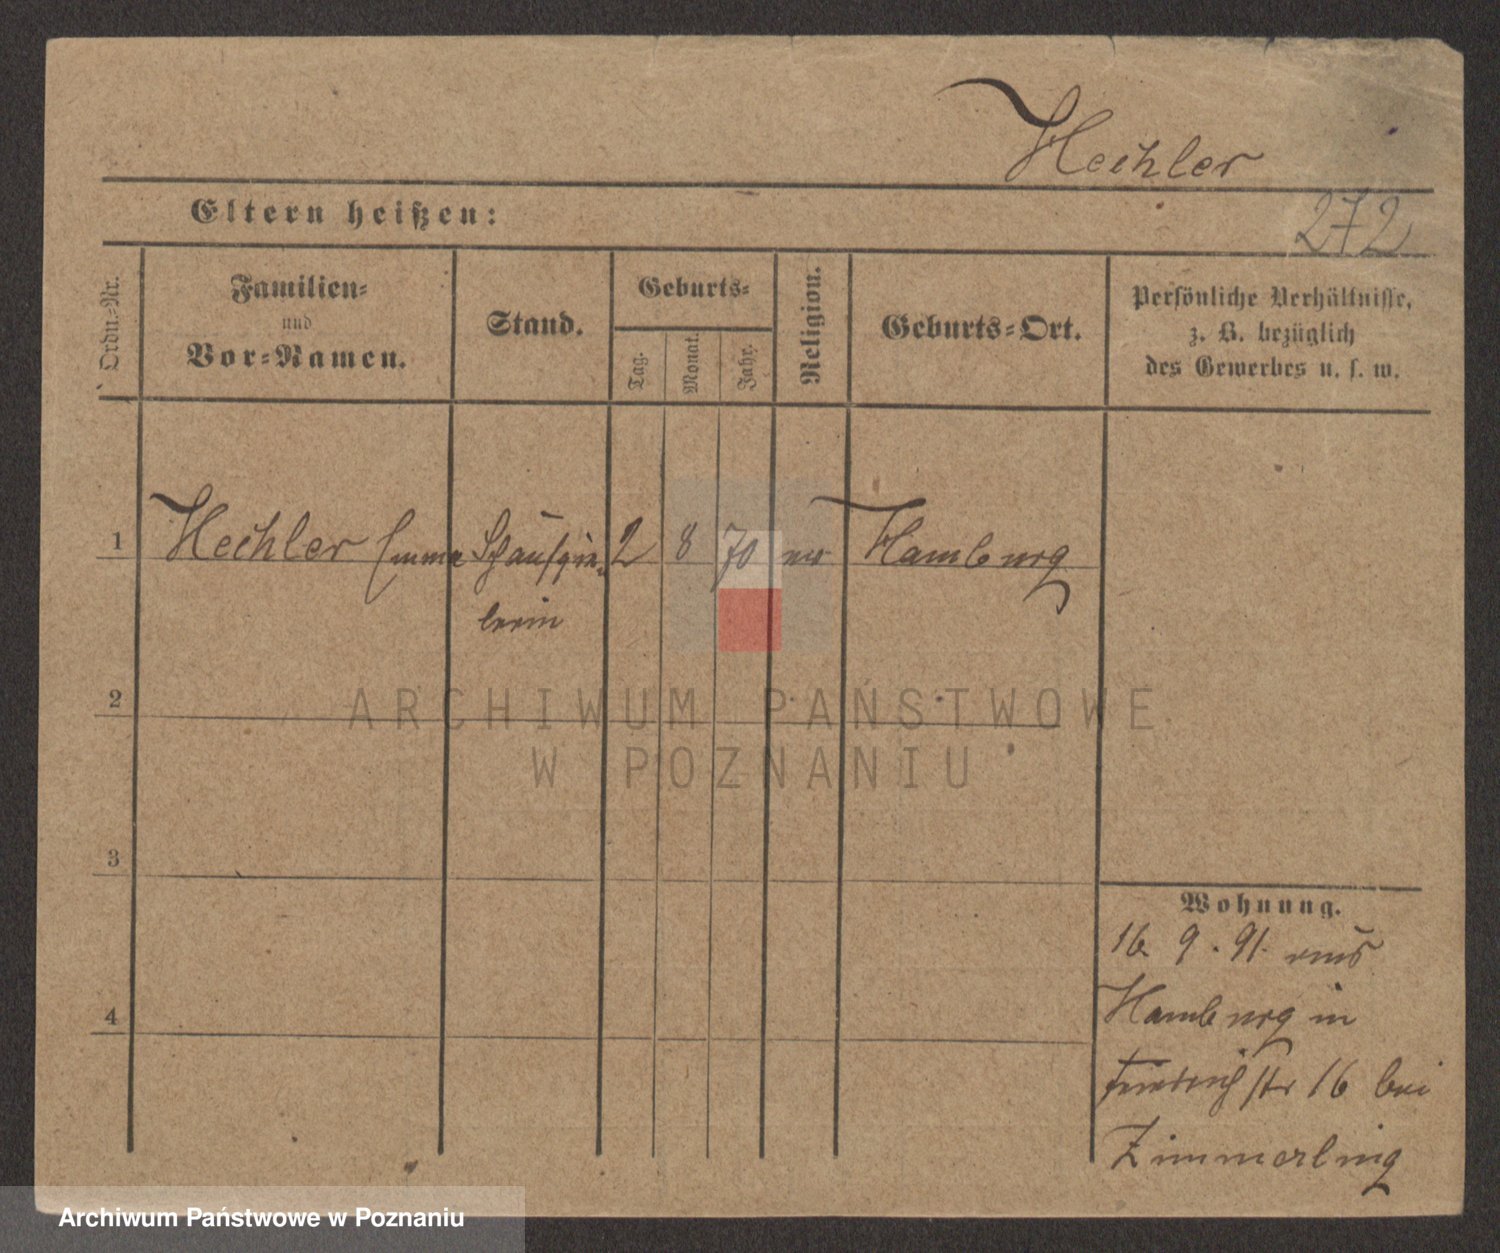 Hechler
272
Eltern heißen:
Ordn.-Nr.
Familien-
und
Vor-Namen.
Stand.
Geburts-
Tag.
Monat.
Jahr.
Religion.
Geburts-Ort.
Persönliche Verhältnisse,
z. B. bezüglich
des Gewerbes u. s. w.
1 Hechler Emma Schauspie- 2 8 70 ev Hamburg
lerin
2
3
4
Wohnung.
16. 9. 91. aus
Hamburg in
Friedrichstr 16 bei
Zimmerling
ARCHIWUM PAŃSTWOWE
W POZNANIU
Archiwum Państwowe w Poznaniu